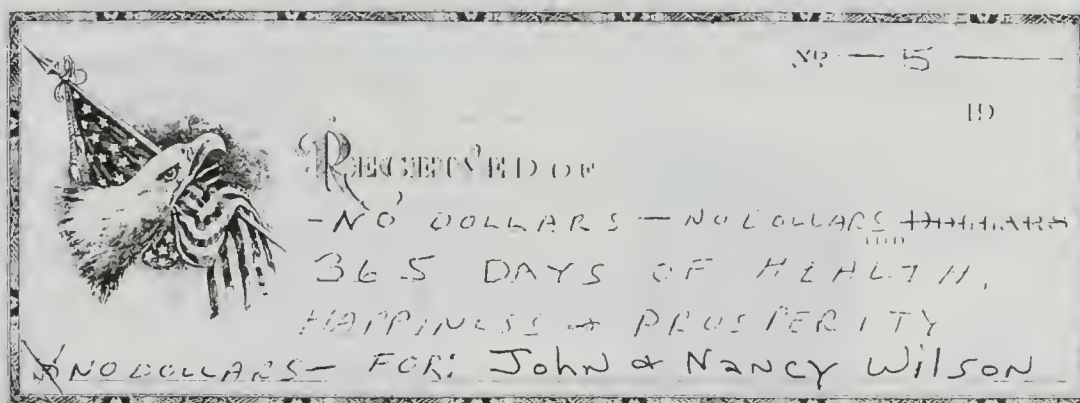 Nº — 15 —
19
RECEIVED OF
- NO DOLLARS - NO DOLLARS
365 DAYS OF HEALTH,
HAPPINESS & PROSPERITY
NO DOLLARS - FOR: John & NANCY WilSON